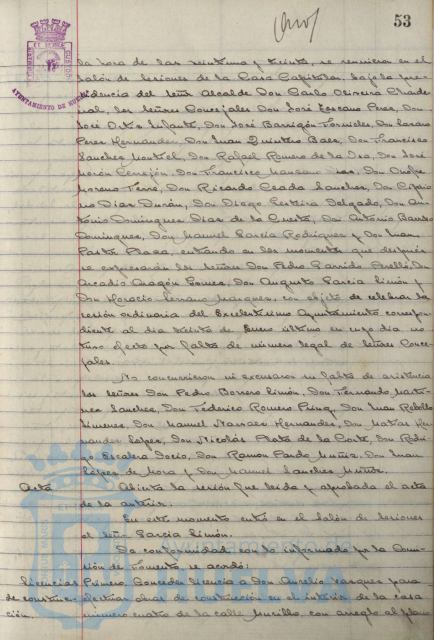 53
AYUNTAMIENTO DE HUELVA
la hora de las veintiuna y treinta, se reunieron en el
Salón de Sesiones de la Casa Capitular, bajo la pre-
sidencia del Señor Alcalde Don Carlos Oliveira Chardenal,
los Señores Concejales Don José Lozano Perez, Don
José Ortiz Infante, Don José Barrigón Fornieles, Don
Perez Hernandez, Don Juan Quintero Baez, Don Francisco
Sanchez Montiel, Don Rafael Romero de la Osa, Don José
Morón Cerrejón, Don Francisco Manzano, Don Onofre
Moreno Terré, Don Ricardo Ceada Sanchez, Don Cipria-
no Diaz Durán, Don Diego Pereira Delgado, Don An-
tonio Dominguez Diaz de la Cuesta, Don Antonio
Dominguez, Don Manuel Garcia Rodriguez y Don Juan
Plaza, entrando en los momentos que después
se expresarán los Señores Don Pedro Garrido Perelló, Don
Arcadio Aragón Gomez, Don Augusto Garcia Limón y
Don Horacio Serrano Marquez, con objeto de celebrar la
sesión ordinaria del Excelentísimo Ayuntamiento correspon-
diente al dia treinta de Enero último en cuyo dia no
tuvo efecto por falta de número legal de Señores Conce-
jales.
No concurrieron ni excusaron su falta de asistencia
los señores Don Pedro Borrero Limón, Don Fernando Marti-
nez Sanchez, Don Federico Romero Perez, Don Juan Rebollo
Jimenez, Don Manuel Narvaez Hernandez, Don Matías Her-
nandez López, Don Nicolás Plata de la Corte, Don Rodri-
go Escalera Docio, Don Ramón Pardo Muñiz, Don Juan
López de Mora y Don Manuel Sanchez Muñiz.
Acta Abierta la sesión fue leida y aprobada el acta
de la anterior.
En este momento entró en el Salón de Sesiones
el Señor Garcia Limón.
De conformidad con lo informado por la Comi-
sión de Fomento se acordó:
Licencias Primero. Conceder licencia a Don Aurelio Vazquez para
de construc- efectuar obras de construcción en el interior de la casa
ción. número cuatro de la calle Murillo, con arreglo al plano